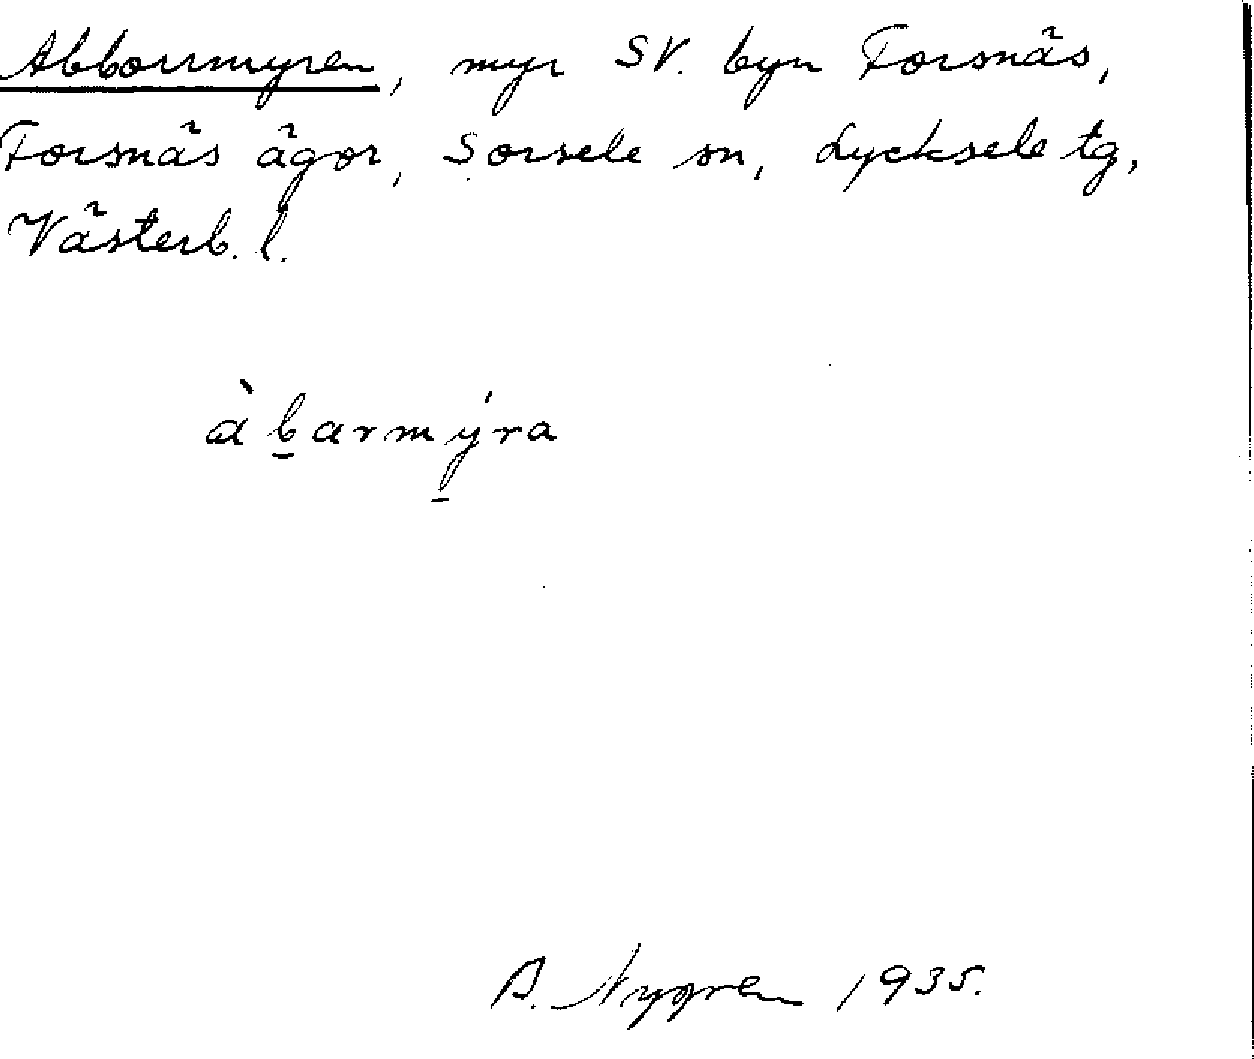 Abborrmyren, myr SV. byn Forsnäs,
Forsnäs ägor, Sorsele sn, Lycksele tg,
Västerb. l.
àb̲armý̲ra
A. Nygren 1935.